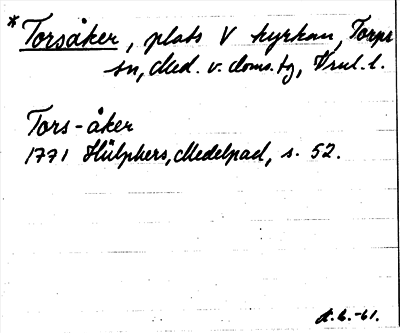 * Torsåker, plats V kyrkan, Torps
sn, Med. v. doms.tg, Vrnl. l.
Tors-åker
1771 Hülphers, Medelpad, s. 52.
A.b.-61.